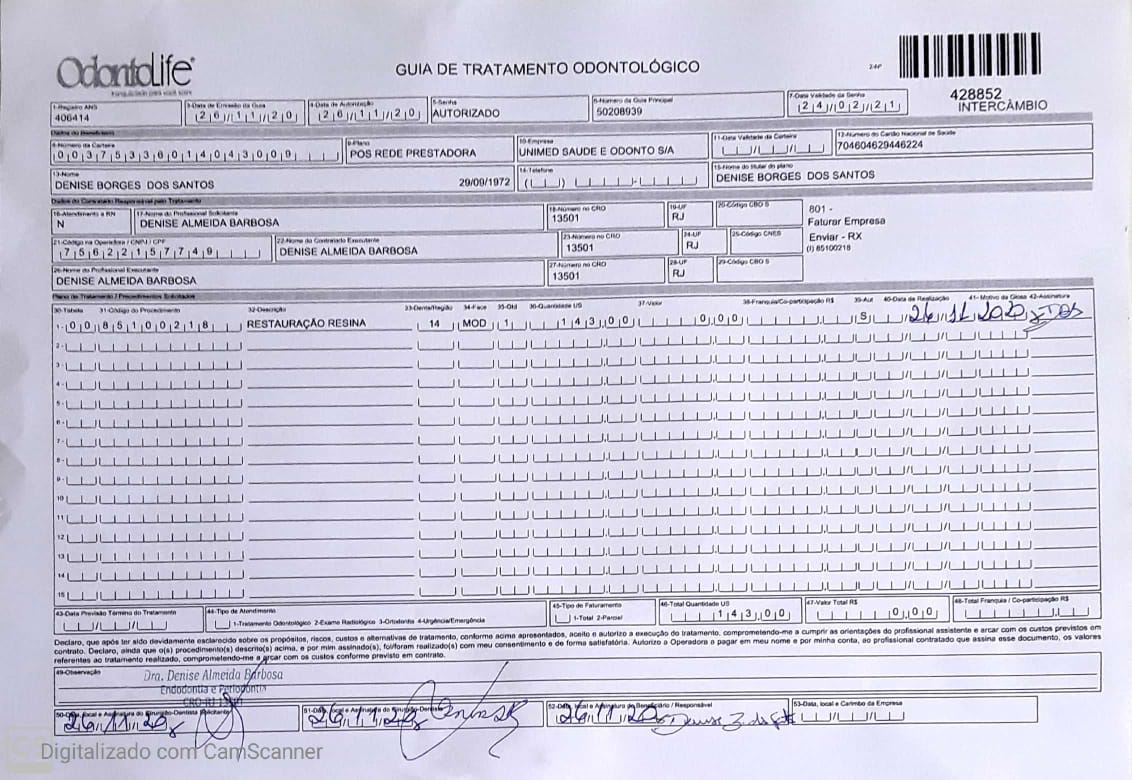 OdontoLife
GUIA DE TRATAMENTO ODONTOLÓGICO
428852
INTERCÂMBIO
1-Registro ANS
406414
3-Data de Emissão da Guia
26/11/20
4-Data de Autorização
26/11/20
5-Senha
AUTORIZADO
6-Número da Guia Principal
50208939
7-Data Validade da Senha
24/02/21
Dados do Beneficiário
8-Número da Carteira
00375336014043009
9-Plano
POS REDE PRESTADORA
10-Empresa
UNIMED SAUDE E ODONTO S/A
11-Data Validade da Carteira
12-Número do Cartão Nacional de Saúde
704604629446224
13-Nome
DENISE BORGES DOS SANTOS 29/09/1972
14-Telefone
15-Nome do titular do plano
DENISE BORGES DOS SANTOS
Dados do Contratado Responsável pelo Tratamento
16-Atendimento a RN
N
17-Nome do Profissional Solicitante
DENISE ALMEIDA BARBOSA
18-Número no CRO
13501
19-UF
RJ
20-Código CBO S
801 -
Faturar Empresa
Enviar - RX
(I) 85100218
21-Código na Operadora / CNPJ / CPF
75622157749
22-Nome do Contratado Executante
DENISE ALMEIDA BARBOSA
23-Número no CRO
13501
24-UF
RJ
25-Código CNES
26-Nome do Profissional Executante
DENISE ALMEIDA BARBOSA
27-Número no CRO
13501
28-UF
RJ
29-Código CBO S
Plano de Tratamento / Procedimentos Solicitados
30-Tabela 31-Código do Procedimento 32-Descrição 33-Dente/Região 34-Face 35-Qtd 36-Quantidade US 37-Valor 38-Franquia/Co-participação R$ 39-Aut 40-Data de Realização 41-Motivo da Glosa 42-Assinatura
1- 00 85100218 RESTAURAÇÃO RESINA 14 MOD 1 143,00 0,00 S 26/11/2020
2-
3-
4-
5-
6-
7-
8-
9-
10
11
12
13
14
15
43-Data Previsão Término do Tratamento
44-Tipo de Atendimento
1-Tratamento Odontológico 2-Exame Radiológico 3-Ortodontia 4-Urgência/Emergência
45-Tipo de Faturamento
1-Total 2-Parcial
46-Total Quantidade US
143,00
47-Valor Total R$
0,00
48-Total Franquia / Co-participação R$
Declaro, que após ter sido devidamente esclarecido sobre os propósitos, riscos, custos e alternativas de tratamento, conforme acima apresentados, aceito e autorizo a execução do tratamento, comprometendo-me a cumprir as orientações do profissional assistente e arcar com os custos previstos em
contrato. Declaro, ainda que o(s) procedimento(s) descrito(s) acima, e por mim assinado(s), foi/foram realizado(s) com meu consentimento e de forma satisfatória. Autorizo a Operadora a pagar em meu nome e por minha conta, ao profissional contratado que assina esse documento, os valores
referentes ao tratamento realizado, comprometendo-me a arcar com os custos conforme previsto em contrato.
49-Observação
Dra. Denise Almeida Barbosa
Endodontia e Periodontia
50-Data, local e Assinatura do Cirurgião-Dentista Solicitante
26/11/20
51-Data, local e Assinatura do Cirurgião-Dentista
26/11/20
52-Data, local e Assinatura do Beneficiário / Responsável
26/11/20
53-Data, local e Carimbo da Empresa
CS Digitalizado com CamScanner